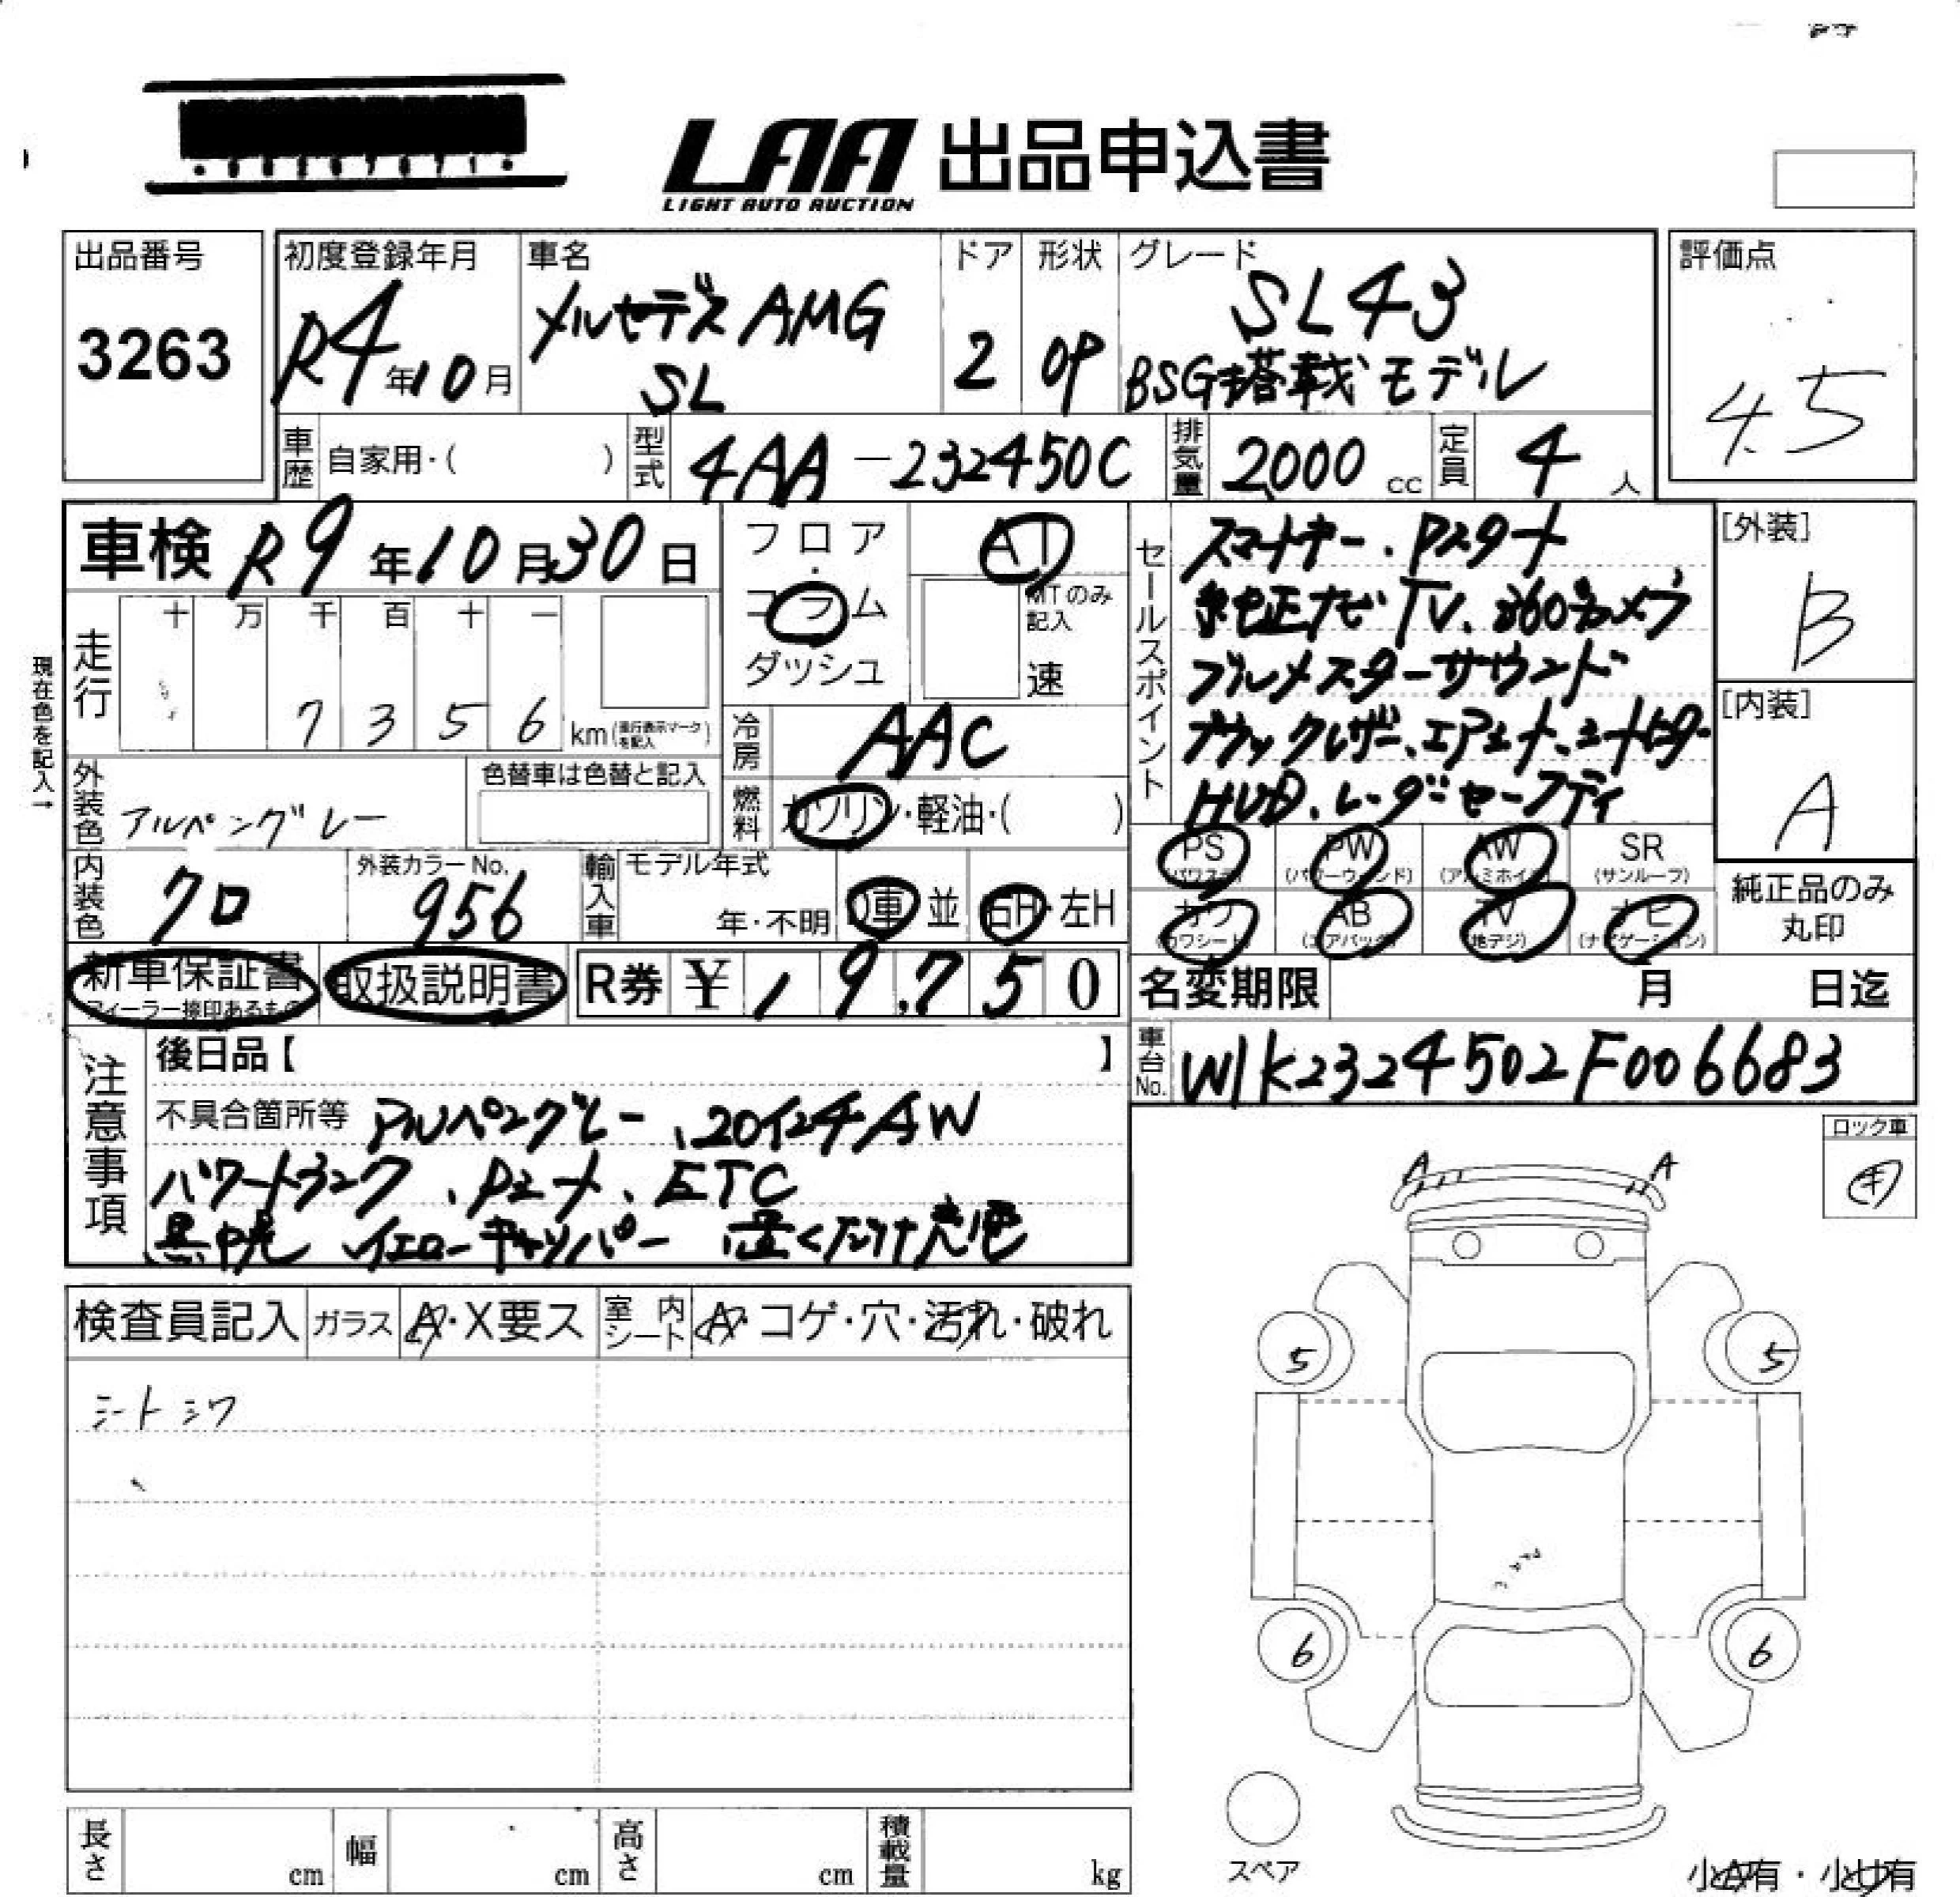 LAA 出品申込書
LIGHT AUTO AUCTION
出品番号
3263
初度登録年月
R4年10月
車名
メルセデス AMG
SL
ドア
2
形状
OP
グレード
SL43
BSG搭載モデル
評価点
4.5
車歴
自家用・( )
型式
4AA-232450C
排気量
2000 cc
定員
4 人
車検 R9年10月30日
フロア
・
コラム
ダッシュ
AT
MTのみ
記入
速
セールスポイント
スマートキー、Pスタート
純正ナビTV、360°カメラ
ブルメスターサウンド
ブラックレザー、エアシート、シートヒーター
HUD、レーダーセーフティ
[外装]
B
[内装]
A
現在色を記入→
走行
十 万 千 百 十 一
7 3 5 6 km(走行表示マークを記入)
冷房
AAC
燃料
ガソリン・軽油・( )
外装色
アルペングレー
色替車は色替と記入
内装色
クロ
外装カラーNo.
956
輸入車
モデル年式
年・不明
D車 並
右H・左H
PS
(パワステ)
PW
(パワーウィンド)
AW
(アルミホイル)
SR
(サンルーフ)
カワ
(カワシート)
AB
(エアバッグ)
TV
(地デジ)
ナビ
(ナビゲーション)
純正品のみ
丸印
新車保証書
フィーラー捺印あるもの
取扱説明書
R券 ¥ 19,750
名変期限 月 日迄
車台No.
W1K2324502F006683
注意事項
後日品【 】
不具合箇所等 アルペングレー、20インチAW
パワートランク、Pシート、ETC
黒幌 イエローキャリパー
ロック車
キ
A A
検査員記入
ガラス
A・X要ス
室内シート
A・コゲ・穴・汚れ・破れ
シートシワ
5 5
6 6
スペア
長さ cm
幅 cm
高さ cm
積載量 kg
小A有・小U有